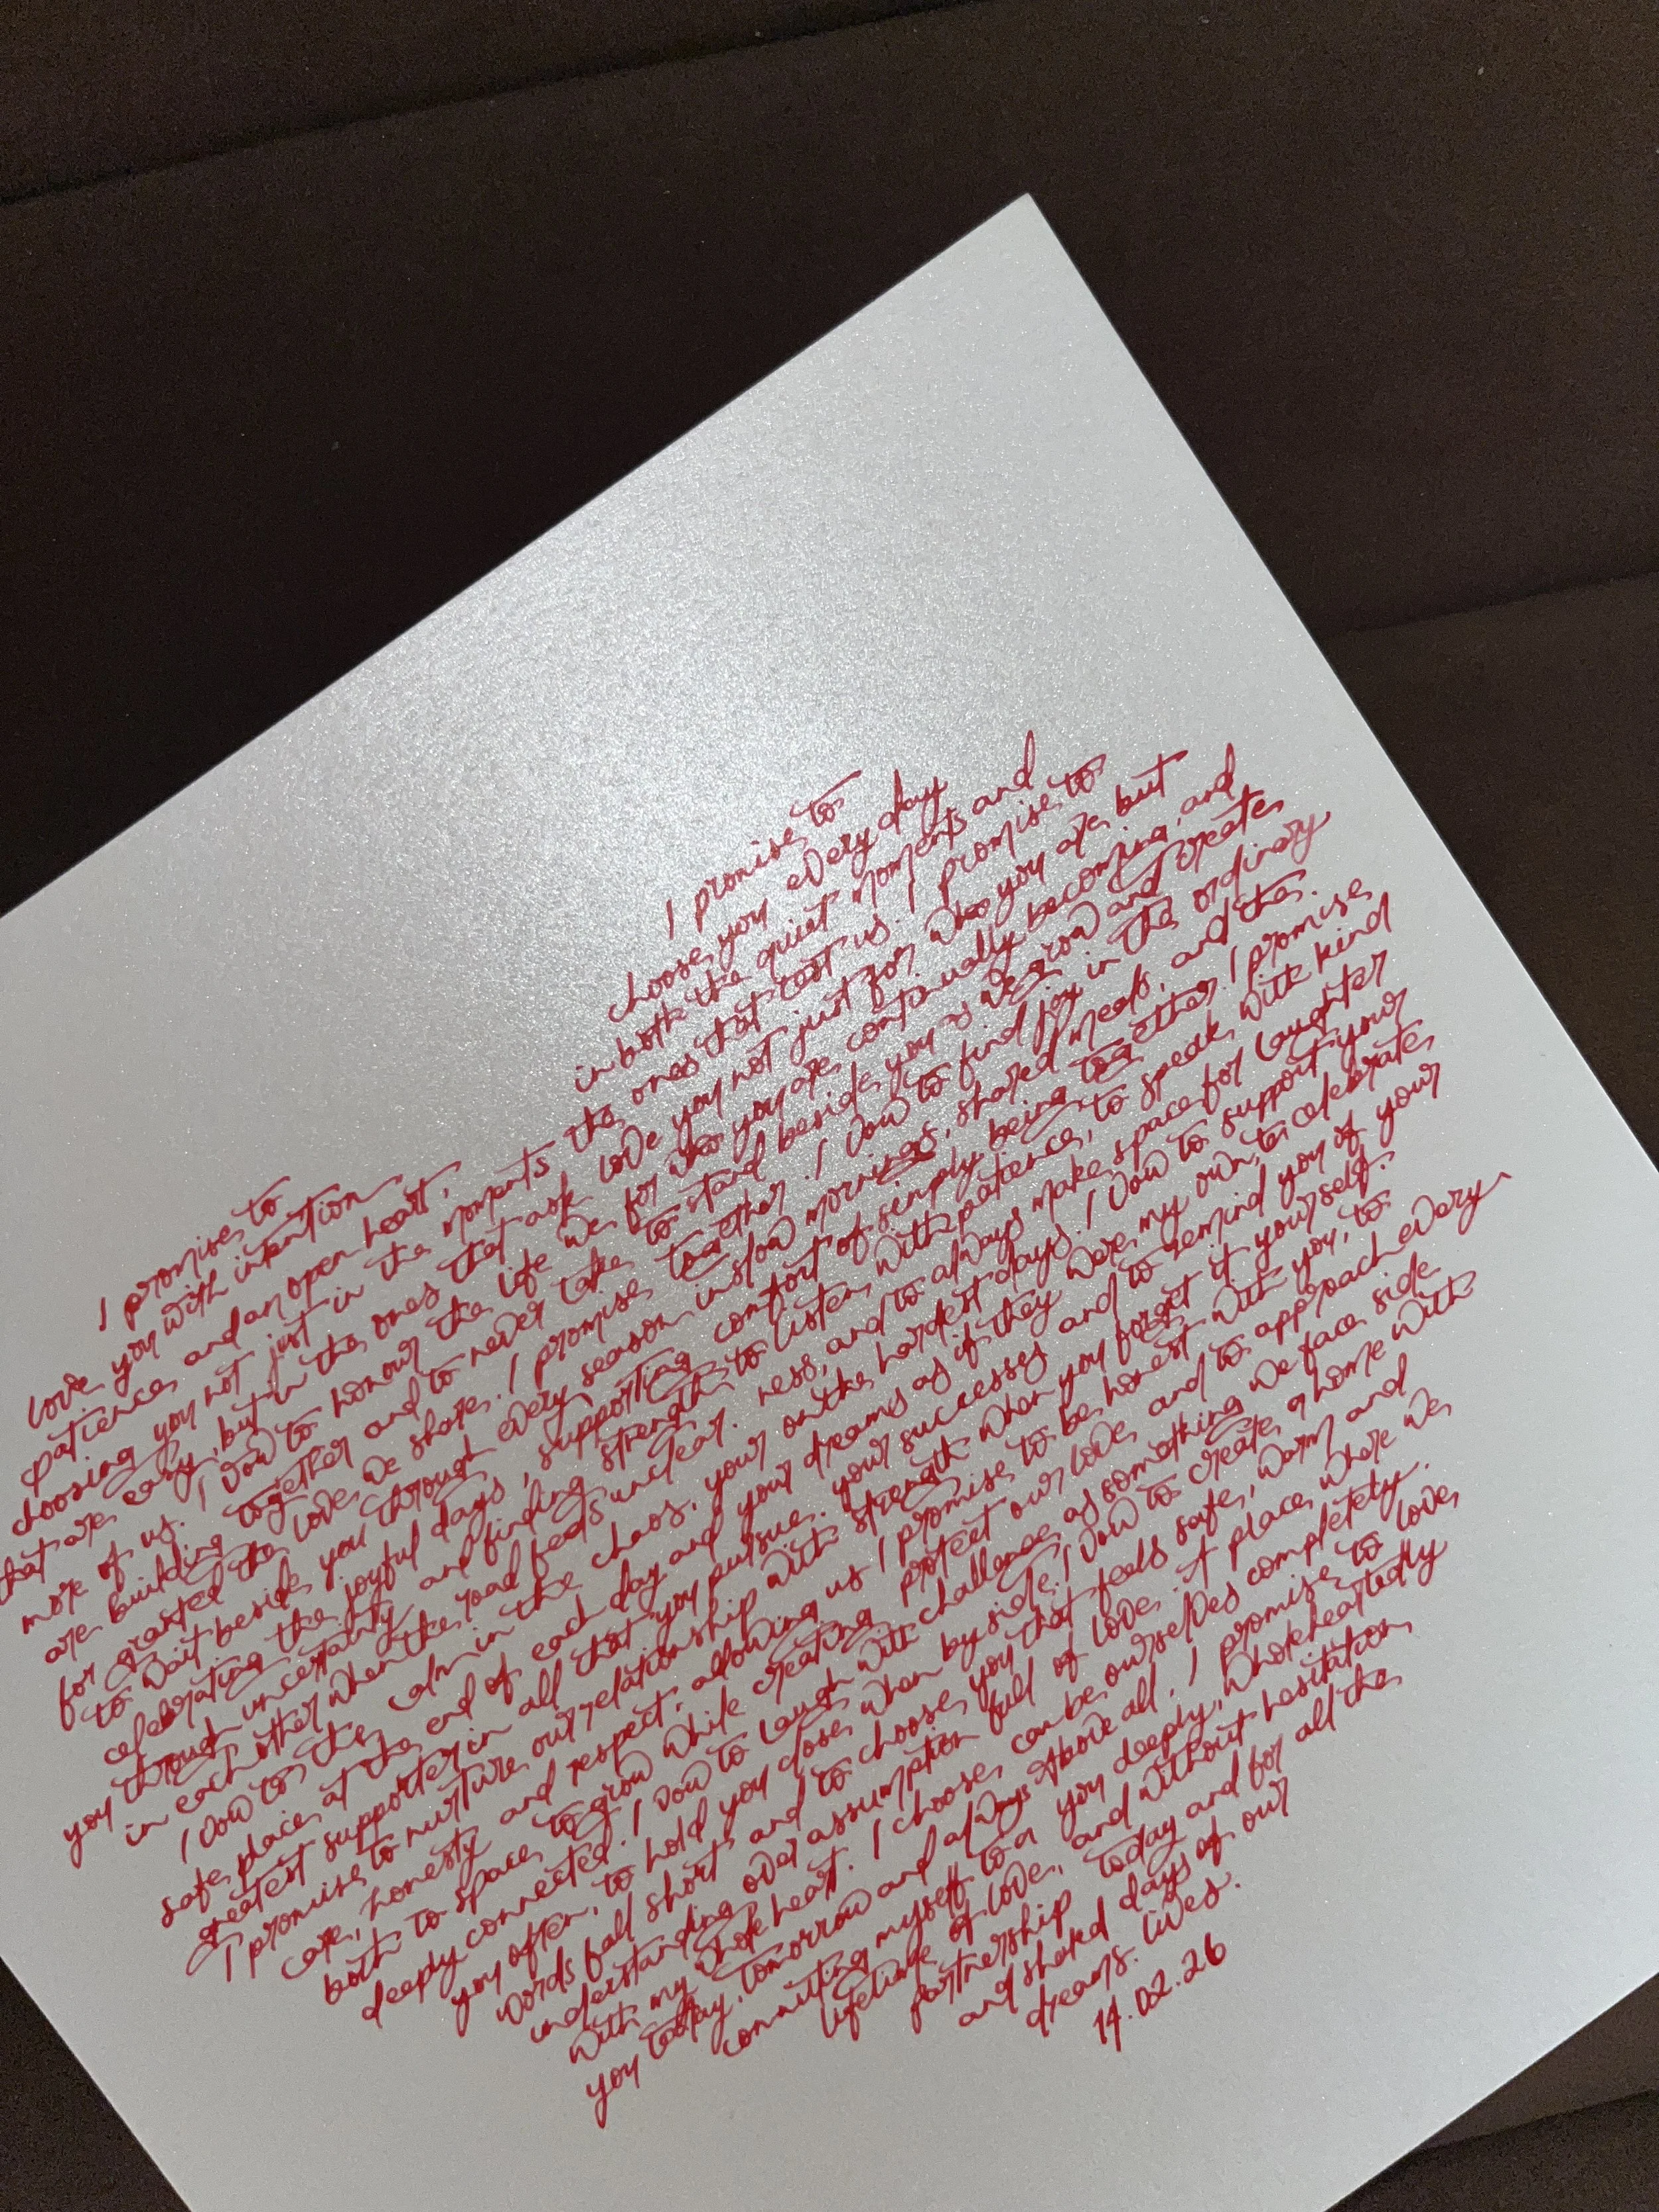 I promise to
love you with intention
patience and an open heart,
choosing you not just in the moments
that are easy, but in the ones that ask
more of us. I vow to honour the life we
are building together and to never take
for granted the love we share. I promise
to wait beside you through every season
celebrating the joyful days, supporting
you through uncertainty and finding strength
in each other when the road feels unclear.
I vow to the calm in the chaos, your
safe place at the end of each day and your
greatest supporter in all that you pursue.
I promise to nurture our relationship with
care, honesty and respect, allowing us
both to space to grow while creating
deeply connected. I vow to laugh with
you often, to hold you close when
words fall short and to choose
understanding over assumption
with my whole heart. I choose
you today, tomorrow and always
committing myself to a
lifetime of love,
partnership
and shared
dreams.
I promise to
choose you every day
in both the quiet moments and
the ones that test us. I promise to
love you not just for who you are but
for who you are continually becoming, and
to stand beside you as we grow and create
together. I vow to find joy in the ordinary
in slow mornings, shared meals, and the.
comfort of simply being together. I promise
to listen with patience, to speak with kind
ness, and to always make space for laughter
on the hardest days. I vow to support your
dreams as if they were my own, to celebrate
your successes and to remind you of your
strength when you forget it yourself.
I promise to be honest with you, to
protect our love and to approach every
challenge as something we face side
by side. I vow to create a home with
you that feels safe, warm and
full of love. A place where we
can be ourselves completely.
Above all, I promise to love
you deeply, wholeheartedly
and without hesitation
today and for all the
days of our
lives.
14.02.26